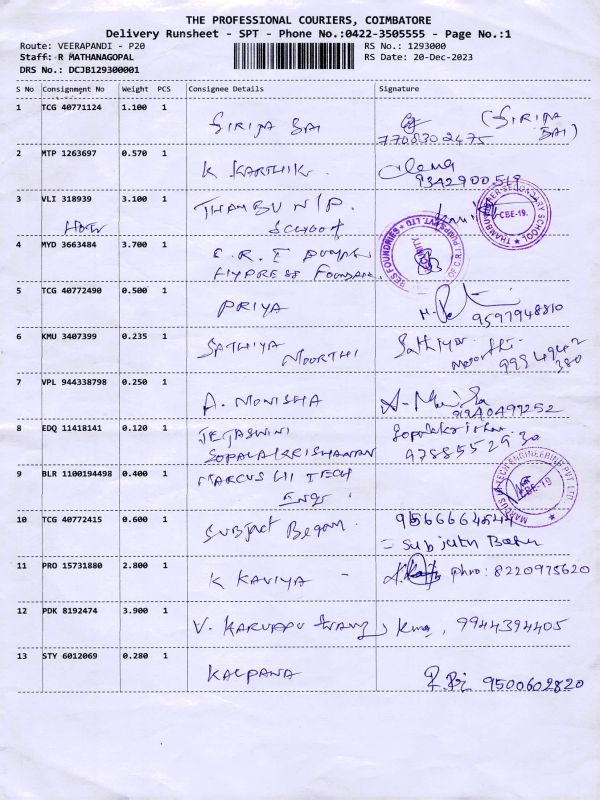 THE PROFESSIONAL COURIERS, COIMBATORE
Delivery Runsheet - SPT - Phone No.:0422-3505555 - Page No.:1
Route: VEERAPANDI - P20 RS No.: 1293000
Staff: R MATHANAGOPAL RS Date: 20-Dec-2023
DRS No.: DCJB129300001
S No Consignment No Weight PCS Consignee Details Signature
1 TCG 40771124 1.100 1 SIRIJA BAI (SIRIJA BAI)
7708302475
2 MTP 1263697 0.570 1 K KARTHIK
3 VLI 318939 3.100 1 THAMBU N/P.
SCHOOL
CBE-19.
4 MYD 3663484 3.700 1 C.R.I PUMPS
5 TCG 40772490 0.500 1 PRIYA
9597948810
6 KMU 3407399 0.235 1 SATHIYA MOORTHI Sathiya
7 VPL 944338798 0.250 1 A. MONISHA
9940499252
8 EDQ 11418141 0.120 1 TEJASWINI
GOPALAKRISHANAN
9788552930
9 BLR 1100194498 0.400 1 MARCUS HI TECH
CBE-19
10 TCG 40772415 0.600 1
11 PRO 15731880 2.800 1 K KAVIYA - phno: 8220975620
12 PDK 8192474 3.900 1 9944394405
13 STY 6012069 0.280 1 KALPANA
9500602820